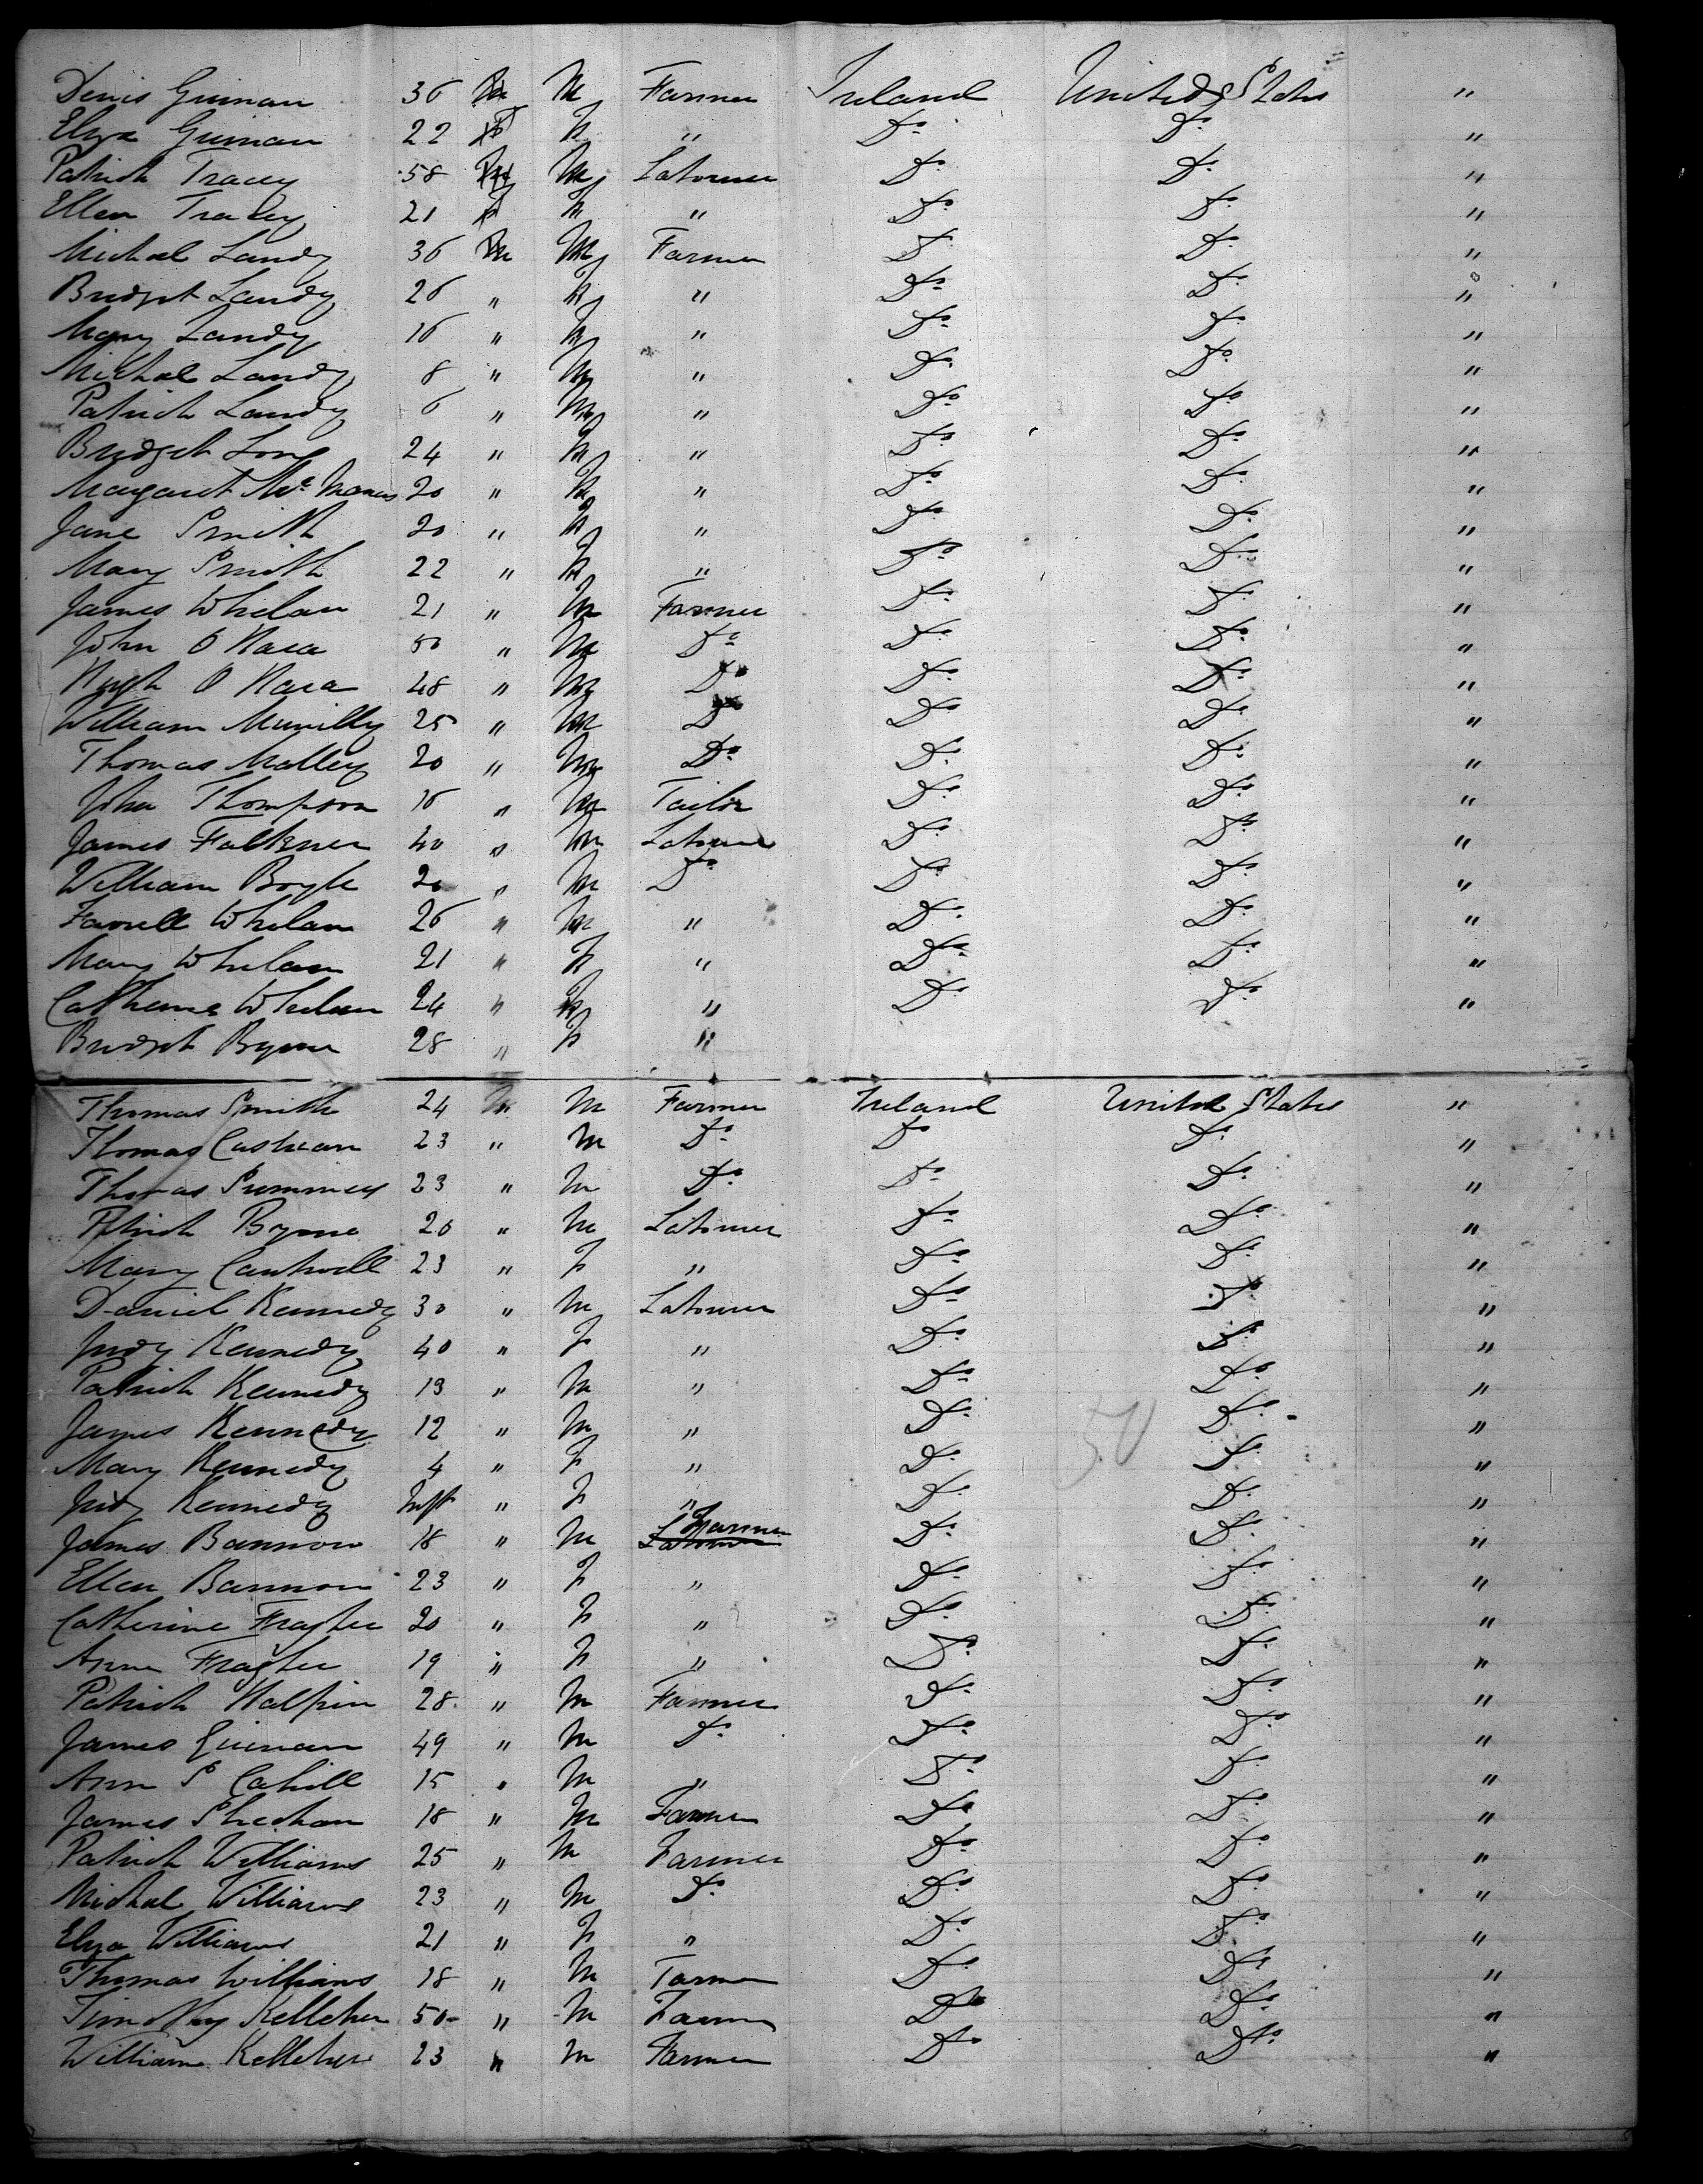 Denis Guinan 36 M Farmer Ireland United States "
Eliza Guinan 22 F " Do Do "
Patrick Tracey 58 M Laborer Do Do "
Ellen Tracey 21 F " Do Do "
Michael Landy 36 M M Farmer Do Do "
Bridget Landy 26 " F " Do Do "
Mary Landy 16 " F " Do Do "
Michael Landy 8 " M " Do Do "
Patrick Landy 6 " M " Do Do "
Bridget Long 24 " F " Do Do "
Margaret Mc Manus 20 " F " Do Do "
Jane Smith 20 " F " Do Do "
Mary Smith 22 " F " Do Do "
James Whelan 21 " M Farmer Do Do "
John O Hara 50 " M Do Do Do "
Hugh O Hara 48 " M Do Do Do "
William Munilly 25 " M Do Do Do "
Thomas Malley 20 " M Do Do Do "
John Thompson 16 " M Tailor Do Do "
James Falkner 40 " M Laborer Do Do "
William Boyle 20 " M Do Do Do "
Farrell Whelan 26 " M " Do Do "
Mary Whelan 21 " F " Do Do "
Catherine Whelan 24 " F " Do Do "
Bridget Byrne 28 " F "
Thomas Smith 24 M M Farmer Ireland United States "
Thomas Cashean 23 " M Do Do Do "
Thomas Summers 23 " M Do Do Do "
Patrick Byrne 20 " M Laborer Do Do "
Mary Cantwell 23 " F " Do Do "
Daniel Kennedy 30 " M Laborer Do Do "
Judy Kennedy 40 " F " Do Do "
Patrick Kennedy 13 " M " Do Do "
James Kennedy 12 " M " Do Do "
Mary Kennedy 4 " F " Do Do "
50
Judy Kennedy Inft " F " Do Do "
James Bannon 18 " M Farmer Do Do "
Ellen Bannon 23 " F " Do Do "
Catherine Fragher 20 " F " Do Do "
Anne Fragher 19 " F " Do Do "
Patrick Halpin 28 " M Farmer Do Do "
James Guinan 49 " M Do Do Do "
Ann S Cahill 15 " M " Do Do "
James Sheehan 18 " M Farmer Do Do "
Patrick Williams 25 " M Farmer Do Do "
Michael Williams 23 " M Do Do Do "
Eliza Williams 21 " F " Do Do "
Thomas Williams 18 " M Farmer Do Do "
Timothy Kelleher 50 " M Farmer Do Do "
William Kelleher 23 " M Farmer Do Do "